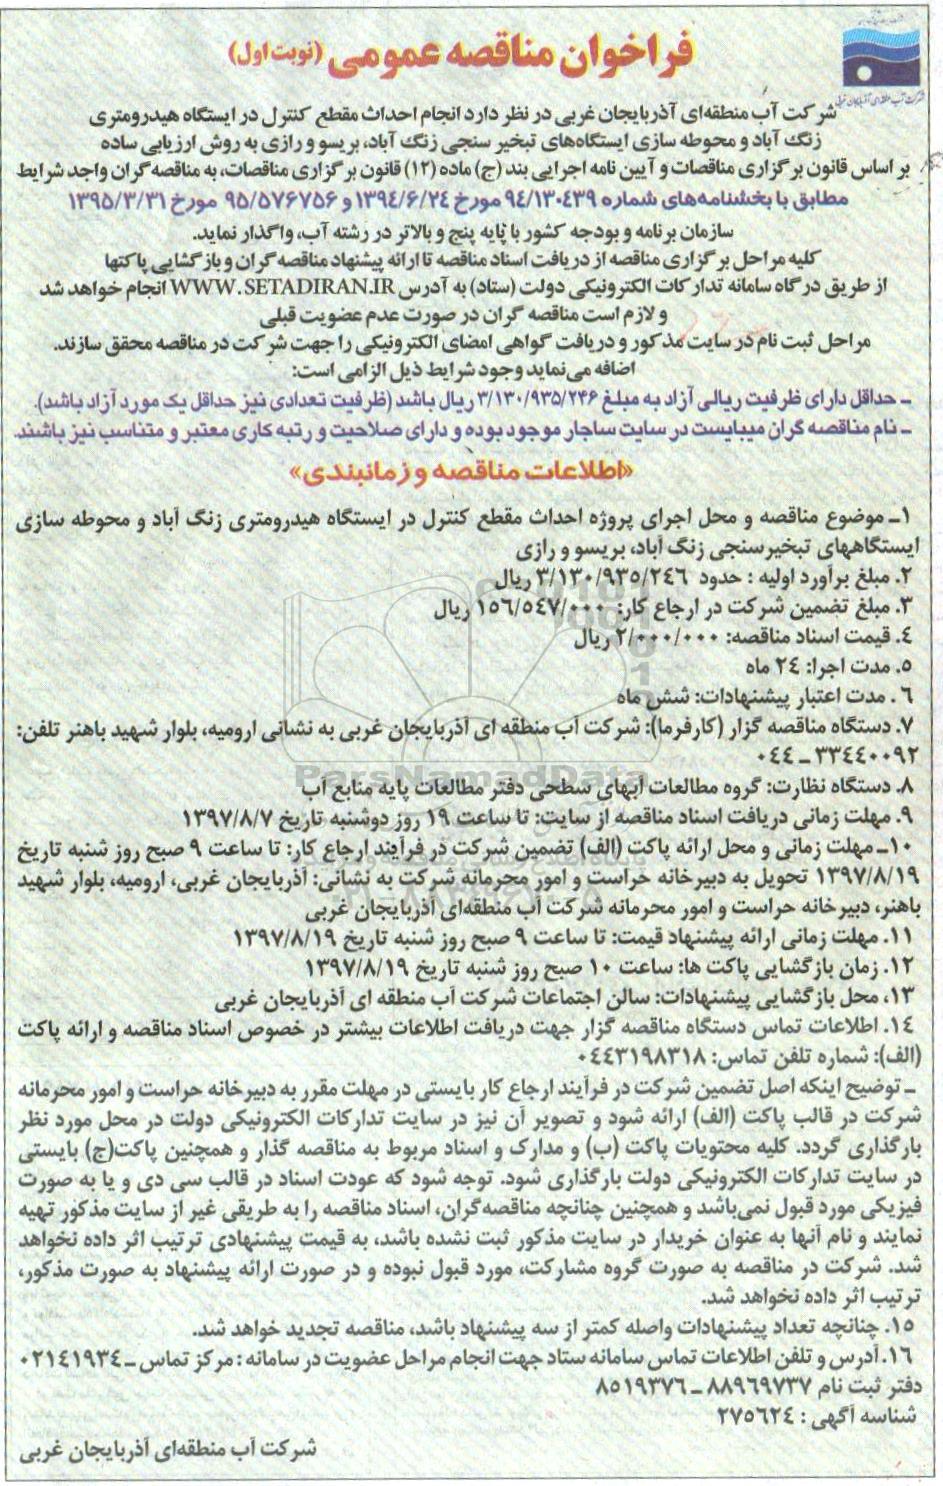 فراخوان مناقصه عمومی (نوبت اول)
شرکت آب منطقه‌ای آذربایجان غربی
شرکت آب منطقه‌ای آذربایجان غربی در نظر دارد انجام احداث مقطع کنترل در ایستگاه هیدرومتری
زنگ آباد و محوطه سازی ایستگاه‌های تبخیر سنجی زنگ آباد، بریسو و رازی به روش ارزیابی ساده
بر اساس قانون برگزاری مناقصات و آیین نامه اجرایی بند (ج) ماده (۱۲) قانون برگزاری مناقصات، به مناقصه گران واجد شرایط
مطابق با بخشنامه‌های شماره ۹۴/۱۳۰۴۳۹ مورخ ۱۳۹۴/۶/۲۴ و ۹۵/۵۷۶۷۵۶ مورخ ۱۳۹۵/۳/۳۱
سازمان برنامه و بودجه کشور با پایه پنج و بالاتر در رشته آب، واگذار نماید.
کلیه مراحل برگزاری مناقصه از دریافت اسناد مناقصه تا ارائه پیشنهاد مناقصه گران و بازگشایی پاکتها
از طریق درگاه سامانه تدارکات الکترونیکی دولت (ستاد) به آدرس WWW.SETADIRAN.IR انجام خواهد شد
و لازم است مناقصه گران در صورت عدم عضویت قبلی
مراحل ثبت نام در سایت مذکور و دریافت گواهی امضای الکترونیکی را جهت شرکت در مناقصه محقق سازند.
اضافه می‌نماید وجود شرایط ذیل الزامی است:
ـ حداقل دارای ظرفیت ریالی آزاد به مبلغ ۳/۱۳۰/۹۳۵/۲۴۶ ریال باشد (ظرفیت تعدادی نیز حداقل یک مورد آزاد باشد).
ـ نام مناقصه گران میبایست در سایت ساجار موجود بوده و دارای صلاحیت و رتبه کاری معتبر و متناسب نیز باشند.
«اطلاعات مناقصه و زمانبندی»
۱ـ موضوع مناقصه و محل اجرای پروژه احداث مقطع کنترل در ایستگاه هیدرومتری زنگ آباد و محوطه سازی
ایستگاههای تبخیرسنجی زنگ آباد، بریسو و رازی
۲. مبلغ برآورد اولیه : حدود ۳/۱۳۰/۹۳۵/۲۴۶ ریال
۳. مبلغ تضمین شرکت در ارجاع کار: ۱۵۶/۵۴۷/۰۰۰ ریال
۴. قیمت اسناد مناقصه: ۲/۰۰۰/۰۰۰ ریال
۵. مدت اجرا: ۲۴ ماه
۶ . مدت اعتبار پیشنهادات: شش ماه
۷. دستگاه مناقصه گزار (کارفرما): شرکت آب منطقه ای آذربایجان غربی به نشانی ارومیه، بلوار شهید باهنر تلفن:
۳۳۴۴۰۰۹۲ ـ ۰۴۴
۸. دستگاه نظارت: گروه مطالعات آبهای سطحی دفتر مطالعات پایه منابع آب
۹. مهلت زمانی دریافت اسناد مناقصه از سایت: تا ساعت ۱۹ روز دوشنبه تاریخ ۱۳۹۷/۸/۷
۱۰ـ مهلت زمانی و محل ارائه پاکت (الف) تضمین شرکت در فرآیند ارجاع کار: تا ساعت ۹ صبح روز شنبه تاریخ
۱۳۹۷/۸/۱۹ تحویل به دبیرخانه حراست و امور محرمانه شرکت به نشانی: آذربایجان غربی، ارومیه، بلوار شهید
باهنر، دبیرخانه حراست و امور محرمانه شرکت آب منطقه‌ای آذربایجان غربی
۱۱. مهلت زمانی ارائه پیشنهاد قیمت: تا ساعت ۹ صبح روز شنبه تاریخ ۱۳۹۷/۸/۱۹
۱۲. زمان بازگشایی پاکت ها: ساعت ۱۰ صبح روز شنبه تاریخ ۱۳۹۷/۸/۱۹
۱۳، محل بازگشایی پیشنهادات: سالن اجتماعات شرکت آب منطقه ای آذربایجان غربی
۱۴. اطلاعات تماس دستگاه مناقصه گزار جهت دریافت اطلاعات بیشتر در خصوص اسناد مناقصه و ارائه پاکت
(الف): شماره تلفن تماس: ۰۴۴۳۱۹۸۳۱۸
ـ توضیح اینکه اصل تضمین شرکت در فرآیند ارجاع کار بایستی در مهلت مقرر به دبیرخانه حراست و امور محرمانه
شرکت در قالب پاکت (الف) ارائه شود و تصویر آن نیز در سایت تدارکات الکترونیکی دولت در محل مورد نظر
بارگذاری گردد. کلیه محتویات پاکت (ب) و مدارک و اسناد مربوط به مناقصه گذار و همچنین پاکت(ج) بایستی
در سایت تدارکات الکترونیکی دولت بارگذاری شود. توجه شود که عودت اسناد در قالب سی دی و یا به صورت
فیزیکی مورد قبول نمی‌باشد و همچنین چنانچه مناقصه‌گران، اسناد مناقصه را به طریقی غیر از سایت مذکور تهیه
نمایند و نام آنها به عنوان خریدار در سایت مذکور ثبت نشده باشد، به قیمت پیشنهادی ترتیب اثر داده نخواهد
شد. شرکت در مناقصه به صورت گروه مشارکت، مورد قبول نبوده و در صورت ارائه پیشنهاد به صورت مذکور،
ترتیب اثر داده نخواهد شد.
۱۵. چنانچه تعداد پیشنهادات واصله کمتر از سه پیشنهاد باشد، مناقصه تجدید خواهد شد.
۱۶.آدرس و تلفن اطلاعات تماس سامانه ستاد جهت انجام مراحل عضویت در سامانه : مرکز تماس ـ ۰۲۱۴۱۹۳۴
دفتر ثبت نام ۸۸۹۶۹۷۳۷ ـ ۸۵۱۹۳۷۶
شناسه آگهی : ۲۷۵۶۲۴
شرکت آب منطقه‌ای آذربایجان غربی
ParsNamadData